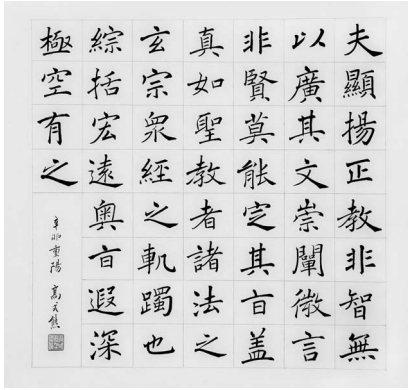 夫顯揚正教非智無
以廣其文崇闡微言
非賢莫能定其旨盖
真如聖教者諸法之
玄宗衆經之軌躅也
綜括宏遠奧旨遐深
極空有之
辛卯重陽